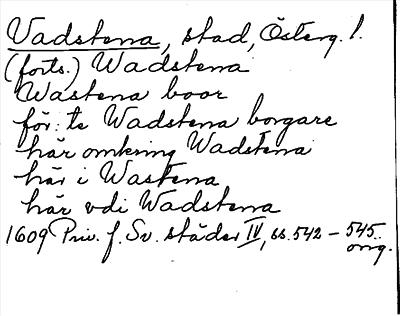 Vadstena, stad, Österg. l.
(forts.) Wadstena
Wastena boer
för:te Wadstena borgare
här omkring Wadstena
här i Wastena
här vdi Wadstena
1609 Priv. f. Sv. städer IV, ss. 542 – 545.
orig.